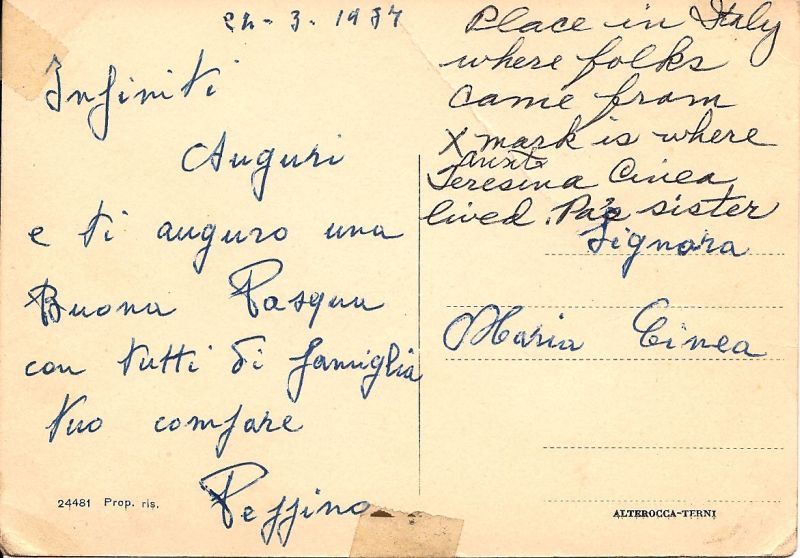 24-3-1957
Infiniti
Auguri
e ti auguro una
Buona Pasqua
con tutti di famiglia
tuo compare
Peppino
24481 Prop. ris.
Place in Italy
where folks
came from
X mark is where
Aunt
Teresina Cinea
lived. Pa's sister
Signora
Maria Cinea
ALTEROCCA-TERNI